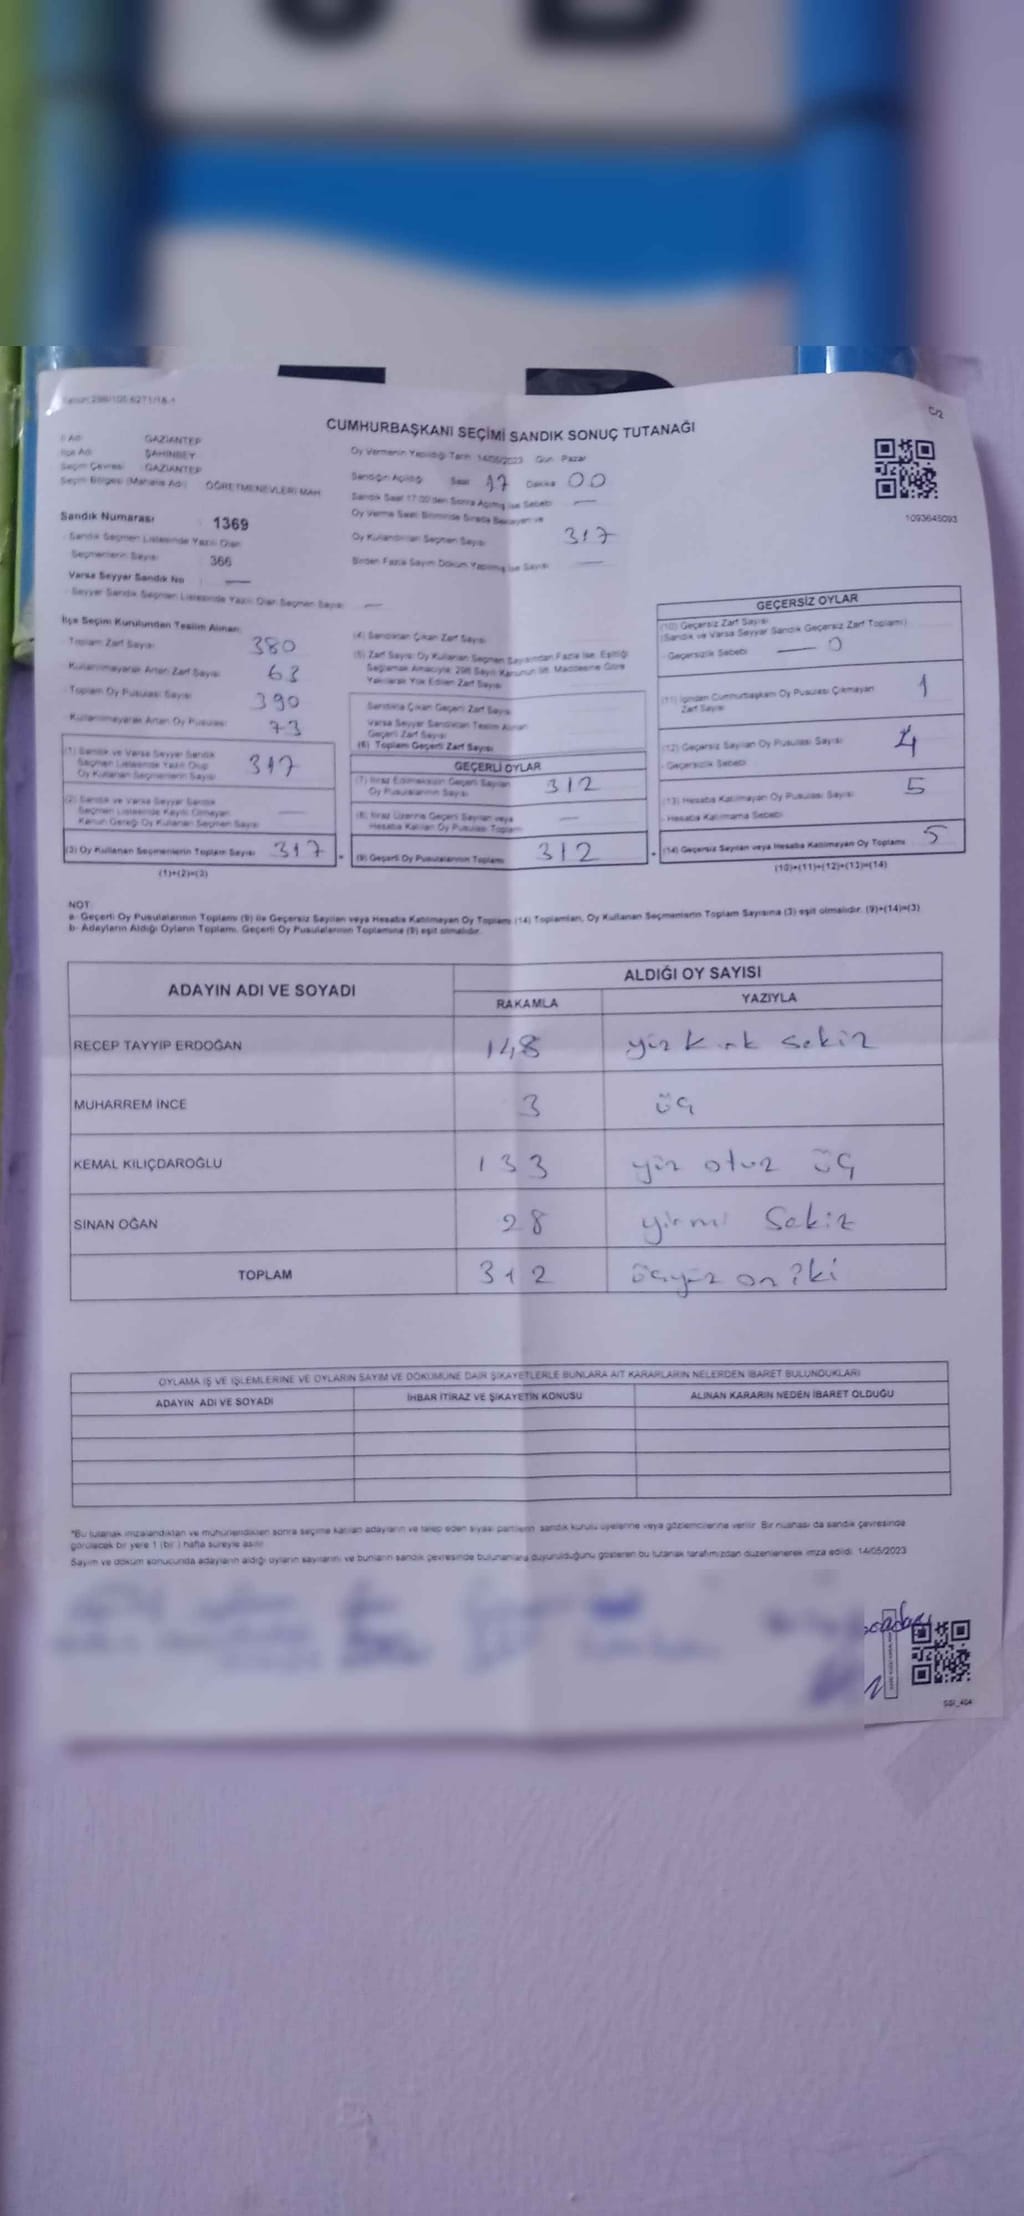 C/2
CUMHURBAŞKANI SEÇİMİ SANDIK SONUÇ TUTANAĞI
İl Adı GAZİANTEP
İlçe Adı ŞAHİNBEY
Seçim Çevresi GAZİANTEP
Seçim Bölgesi (Mahalle Adı) ÖĞRETMENEVLERİ MAH
Oy Vermenin Yapıldığı Tarih 14/05/2023 Gün Pazar
Sandığın Açıldığı Saat 17 Dakika 00
Sandık Saat 17:00'den Sonra Açılmış İse Sebebi —
Oy Verme Saati Bitiminde Sırada Bekleyen ve
Oy Kullandırılan Seçmen Sayısı 317
Birden Fazla Sayım Döküm Yapılmış İse Sayısı —
1093645093
Sandık Numarası 1369
Sandık Seçmen Listesinde Yazılı Olan
Seçmenlerin Sayısı 366
Varsa Seyyar Sandık No —
Seyyar Sandık Seçmen Listesinde Yazılı Olan Seçmen Sayısı —
İlçe Seçim Kurulundan Teslim Alınan
Toplam Zarf Sayısı 380
Kullanılmayarak Artan Zarf Sayısı 63
Toplam Oy Pusulası Sayısı 390
Kullanılmayarak Artan Oy Pusulası 73
(1) Sandık ve Varsa Seyyar Sandık
Seçmen Listesinde Yazılı Olup
Oy Kullanan Seçmenlerin Sayısı 317
(2) Sandık ve Varsa Seyyar Sandık
Seçmen Listesinde Kayıtlı Olmayan
Kanun Gereği Oy Kullanan Seçmen Sayısı —
(3) Oy Kullanan Seçmenlerin Toplam Sayısı 317
(1)+(2)=(3)
(4) Sandıktan Çıkan Zarf Sayısı
(5) Zarf Sayısı Oy Kullanan Seçmen Sayısından Fazla İse, Eşitliği
Sağlamak Amacıyla 298 Sayılı Kanunun 98. Maddesine Göre
Yakılarak Yok Edilen Zarf Sayısı
Sandıkta Çıkan Geçerli Zarf Sayısı
Varsa Seyyar Sandıktan Teslim Alınan
Geçerli Zarf Sayısı
(6) Toplam Geçerli Zarf Sayısı
GEÇERLİ OYLAR
(7) İtiraz Edilmeksizin Geçerli Sayılan
Oy Pusulalarının Sayısı 312
(8) İtiraz Üzerine Geçerli Sayılan veya
Hesaba Katılan Oy Pusulası Toplamı —
(9) Geçerli Oy Pusulalarının Toplamı 312
GEÇERSİZ OYLAR
(10) Geçersiz Zarf Sayısı
(Sandık ve Varsa Seyyar Sandık Geçersiz Zarf Toplamı)
Geçersizlik Sebebi — 0
(11) İçinden Cumhurbaşkanı Oy Pusulası Çıkmayan
Zarf Sayısı 1
(12) Geçersiz Sayılan Oy Pusulası Sayısı 4
Geçersizlik Sebebi
(13) Hesaba Katılmayan Oy Pusulası Sayısı 5
Hesaba Katılmama Sebebi
(14) Geçersiz Sayılan veya Hesaba Katılmayan Oy Toplamı 5
(10)+(11)+(12)+(13)=(14)
NOT:
a- Geçerli Oy Pusulalarının Toplamı (9) ile Geçersiz Sayılan veya Hesaba Katılmayan Oy Toplamı (14) Toplamları, Oy Kullanan Seçmenlerin Toplam Sayısına (3) eşit olmalıdır. (9)+(14)=(3)
b- Adayların Aldığı Oyların Toplamı, Geçerli Oy Pusulalarının Toplamına (9) eşit olmalıdır.
ADAYIN ADI VE SOYADI
ALDIĞI OY SAYISI
RAKAMLA YAZIYLA
RECEP TAYYİP ERDOĞAN 148 yüz kırk sekiz
MUHARREM İNCE 3 üç
KEMAL KILIÇDAROĞLU 133 yüz otuz üç
SİNAN OĞAN 28 yirmi sekiz
TOPLAM 312 üçyüz on iki
OYLAMA İŞ VE İŞLEMLERİNE VE OYLARIN SAYIM VE DÖKÜMÜNE DAİR ŞİKAYETLERLE BUNLARA AİT KARARLARIN NELERDEN İBARET BULUNDUKLARI
ADAYIN ADI VE SOYADI İHBAR İTİRAZ VE ŞİKAYETİN KONUSU ALINAN KARARIN NEDEN İBARET OLDUĞU
*Bu tutanak imzalandıktan ve mühürlendikten sonra seçime katılan adayların ve talep eden siyasi partilerin sandık kurulu üyelerine veya gözlemcilerine verilir. Bir nüshası da sandık çevresinde
görülecek bir yere 1 (bir) hafta süreyle asılır.
Sayım ve döküm sonucunda adayların aldığı oyların sayılarını ve bunların sandık çevresinde bulunanlara duyurulduğunu gösteren bu tutanak tarafımızdan düzenlenerek imza edildi. 14/05/2023